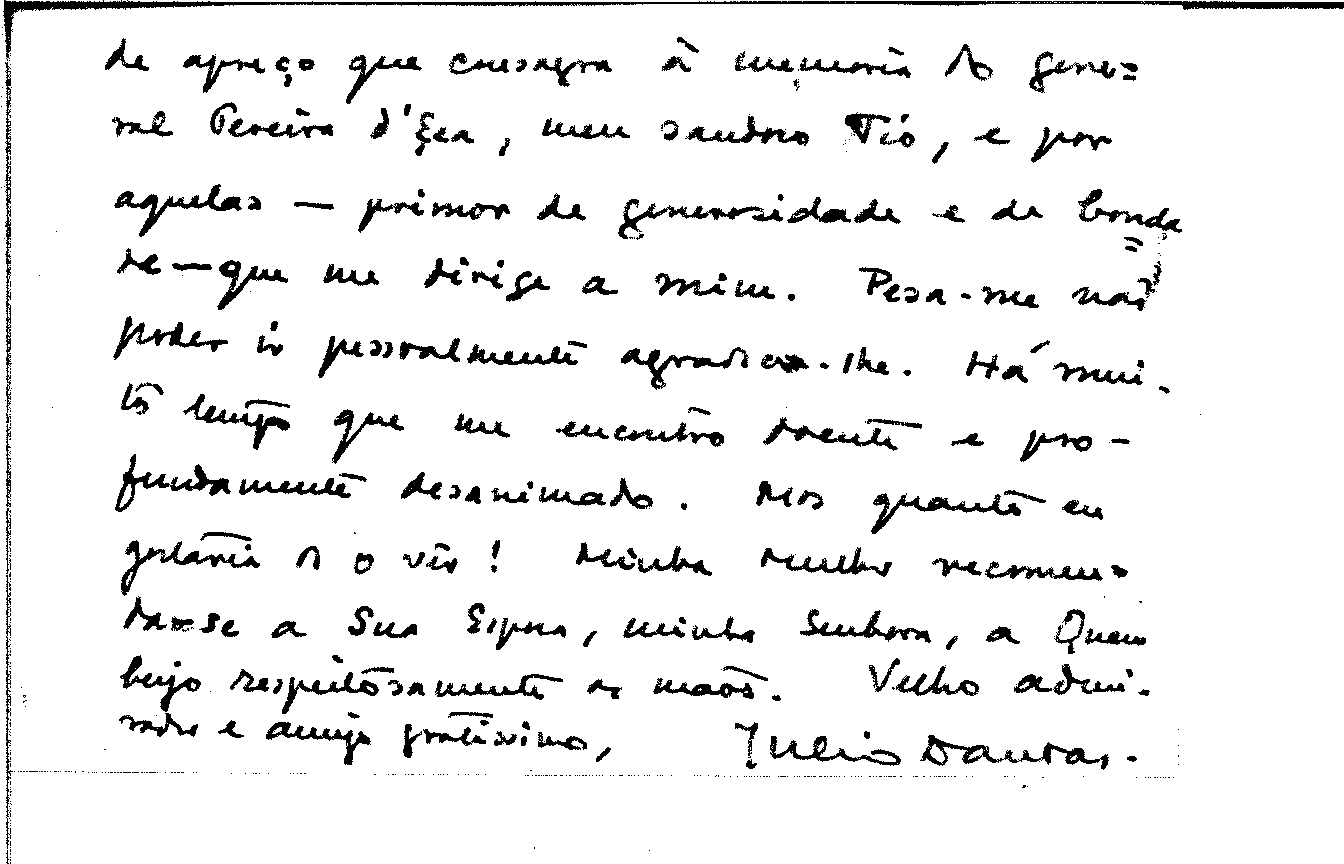 de apreço que consagra à memoria do gene=
ral Pereira d'Eça, meu saudoso Tio, e por
aquelas — primor de generosidade e de bonda
=
de — que me dirige a mim. Pesa-me não
poder ir pessoalmente agradecer-lhe. Há mui-
to tempo que me encontro doente e pro-
fundamente desanimado. Mas quanto eu
gostaria de o vêr! Minha mulher recomen=
da-se a Sua Esposa, minha Senhora, a Quem
beijo respeitosamente as mãos. Velho admi-
rador e amigo gratissimo, Julio Dantas.